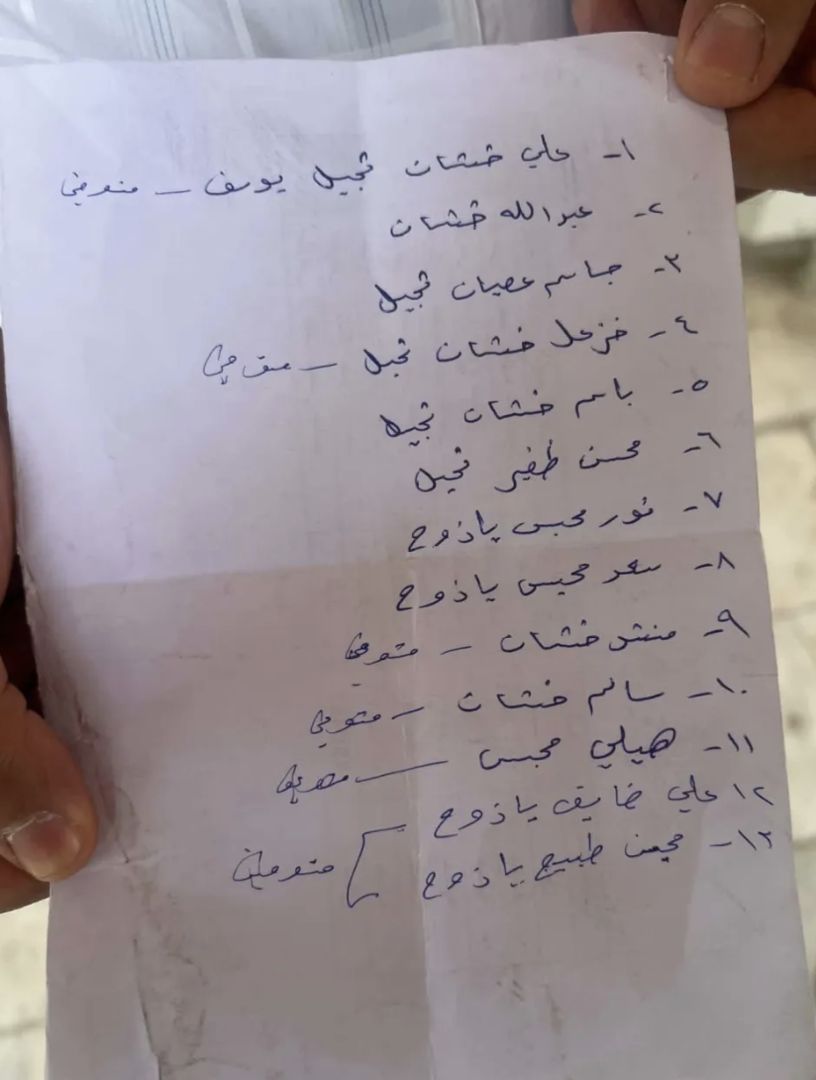 ١- علي خشان ثجيل يوسف - متوفي
٢- عبدالله خشان
٣- جاسم عصيان ثجيل
٤- خزعل خشان ثجيل - متوفي
٥- باسم خشان ثجيل
٦- محسن ظفير ثجيل
٧- نور محيبس ياذوح
٨- سعد محيبس ياذوح
٩- خشان - متوفي
١٠- سالم خشان - متوفي
١١- هيلي محيبس - متوفي
١٢ علي ضايف ياذوح
١٣- طبيج ياذوح متوفين